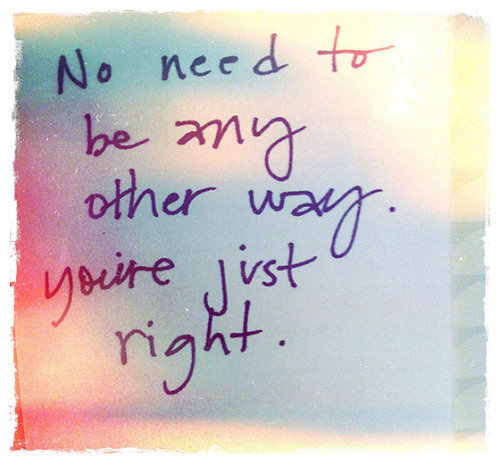 No need to
be any
other way.
you're just
right.